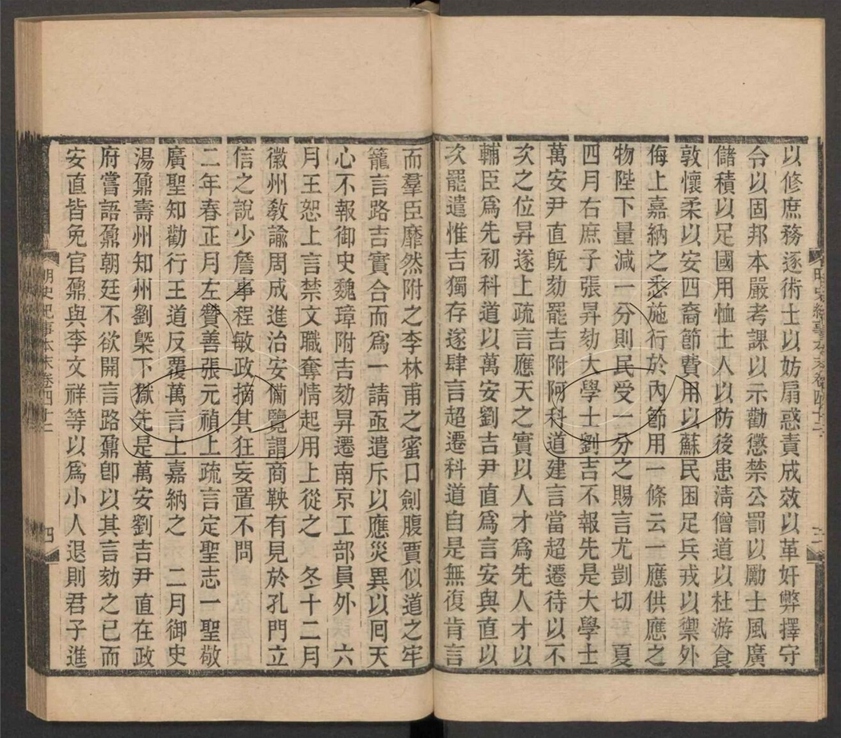 以修庶務逐術士以妨扇惑責成效以革奸弊擇守
令以固邦本嚴考課以示勸懲禁公罰以勵士風廣
儲積以足國用恤土人以防後患清僧道以杜游食
敦懷柔以安四裔節費用以蘇民困足兵戎以禦外
侮上嘉納之悉施行於內節用一條云一應供應之
物陛下量減一分則民受一分之賜言尤剴切　夏
四月右庶子張昇劾大學士劉吉不報先是大學士
萬安尹直旣劾罷吉附阿科道建言當超遷待以不
次之位昇遂上疏言應天之實以人才爲先人才以
輔臣爲先初科道以萬安劉吉尹直爲言安與直以
次罷遣惟吉獨存遂肆言超遷科道自是無復肯言
而羣臣靡然附之李林甫之蜜口劍腹賈似道之牢
籠言路吉實合而爲一請亟遣斥以應災異以囘天
心不報御史魏璋附吉劾昇遷南京工部員外　六
月王恕上言禁文職奪情起用上從之　冬十二月
徽州敎諭周成進治安備覽謂商鞅有見於孔門立
信之說少詹事程敏政摘其狂妄置不問
二年春正月左贊善張元禎上疏言定聖志一聖敬
廣聖知勸行王道反覆萬言上嘉納之　二月御史
湯鼐壽州知州劉槩下獄先是萬安劉吉尹直在政
府嘗語鼐朝廷不欲開言路鼐卽以其言劾之已而
安直皆免官鼐與李文祥等以爲小人退則君子進
明史紀事本末卷四十二
三
明史紀事本末卷四十二
四